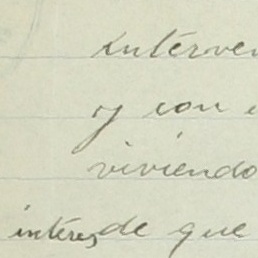 interven
y con
viviendo
interes, de que